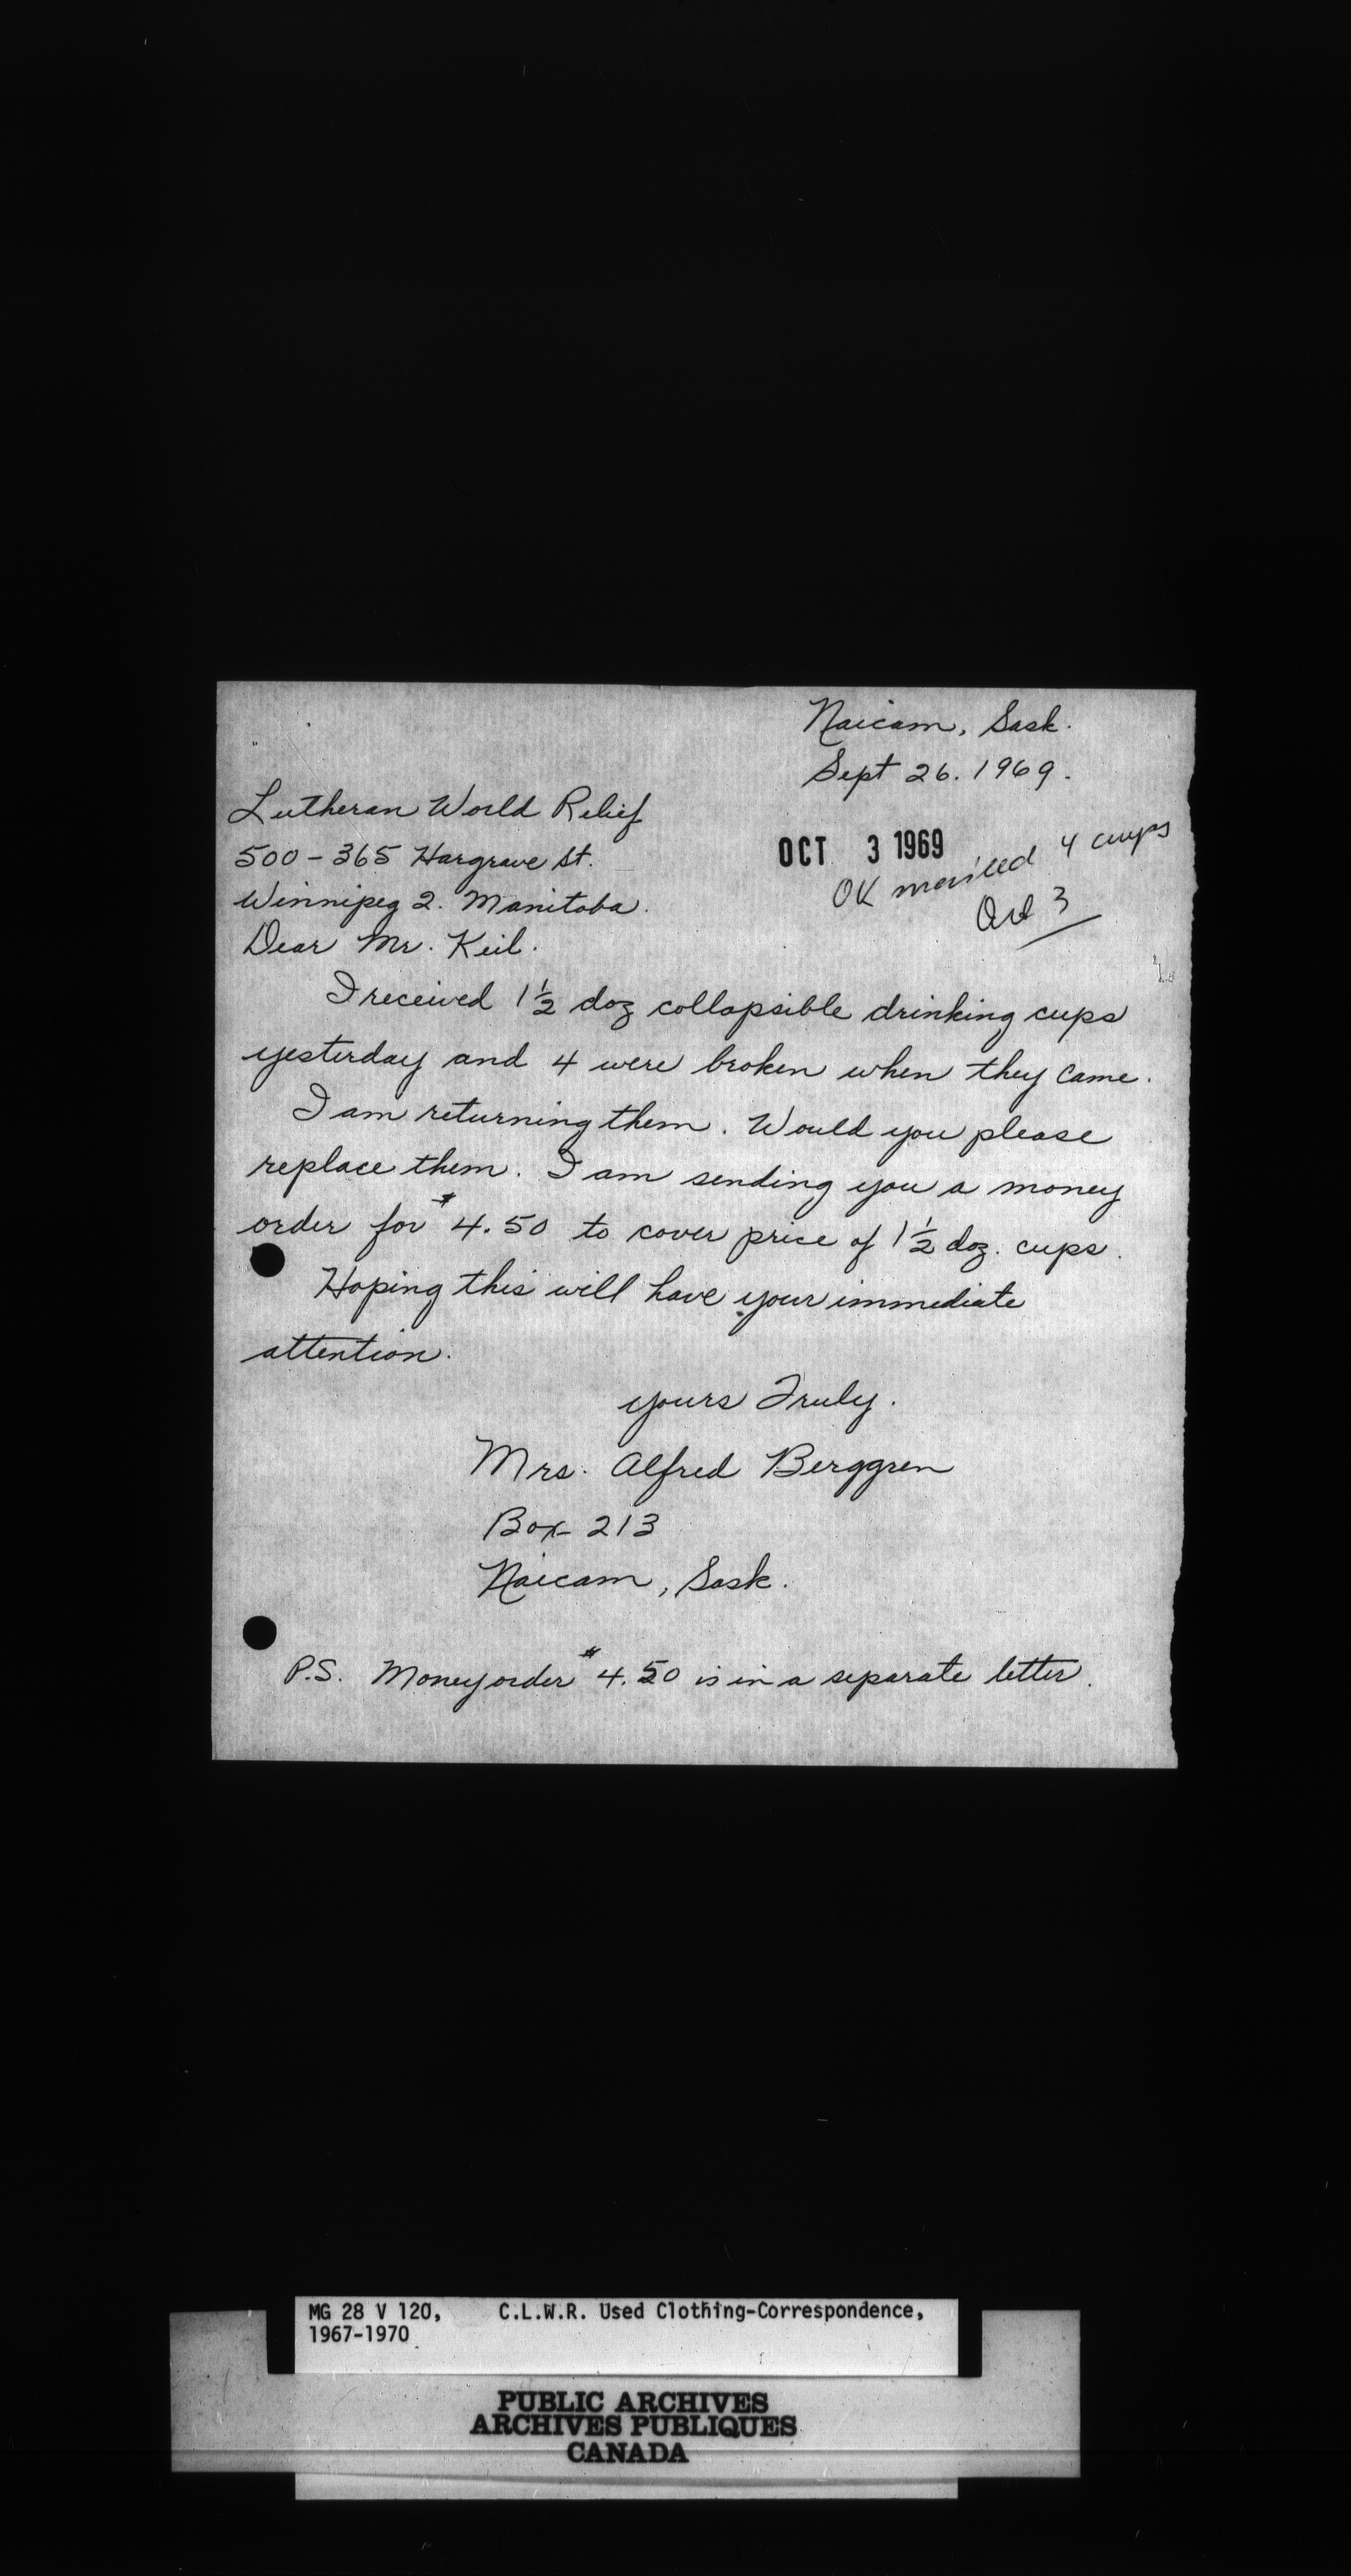 Naicam, Sask.
Sept 26. 1969.
Lutheran World Relief
500-365 Hargrave St.
Winnipeg 2. Manitoba.
OCT 3 1969
OK mailed 4 cups
Oct 3
Dear Mr. Keil.
I received 1 1/2 doz collapsible drinking cups
yesterday and 4 were broken when they came.
I am returning them. Would you please
replace them. I am sending you a money
order for $4.50 to cover price of 1 1/2 doz. cups.
Hoping this will have your immediate
attention.
yours Truly.
Mrs. Alfred Berggren
Box 213
Naicam, Sask.
P.S. Money order $4.50 is in a separate letter.
MG 28 V 120, C.L.W.R. Used Clothing-Correspondence,
1967-1970
PUBLIC ARCHIVES
ARCHIVES PUBLIQUES
CANADA